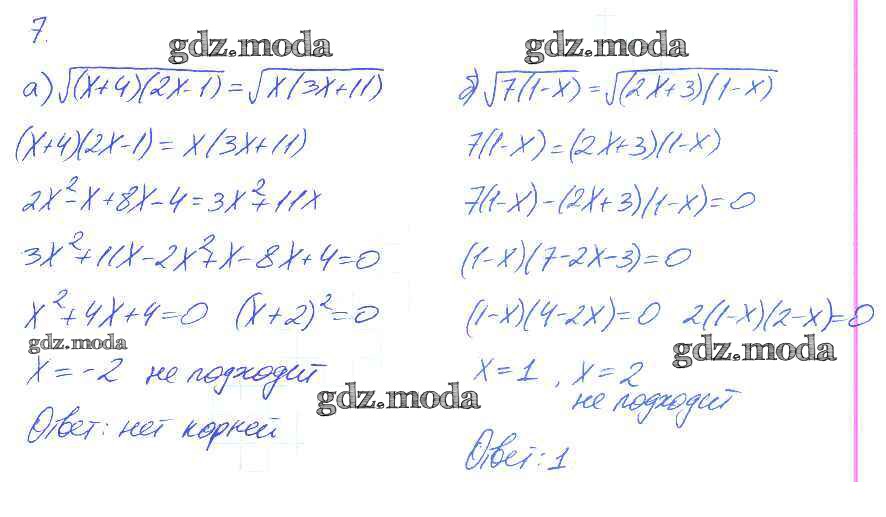 7.
gdz.moda
gdz.moda
а) √(x+4)(2x-1) = √x(3x+11)
(x+4)(2x-1) = x(3x+11)
2x²-x+8x-4=3x²+11x
3x²+11x-2x²+x-8x+4=0
x²+4x+4=0 (x+2)²=0
gdz.moda
x=-2 не подходит
gdz.moda
Ответ: нет корней
б) √7(1-x) = √(2x+3)(1-x)
7(1-x)=(2x+3)(1-x)
7(1-x)-(2x+3)(1-x)=0
(1-x)(7-2x-3)=0
(1-x)(4-2x)=0 2(1-x)(2-x)=0
gdz.moda
x=1, x=2
не подходит
Ответ: 1